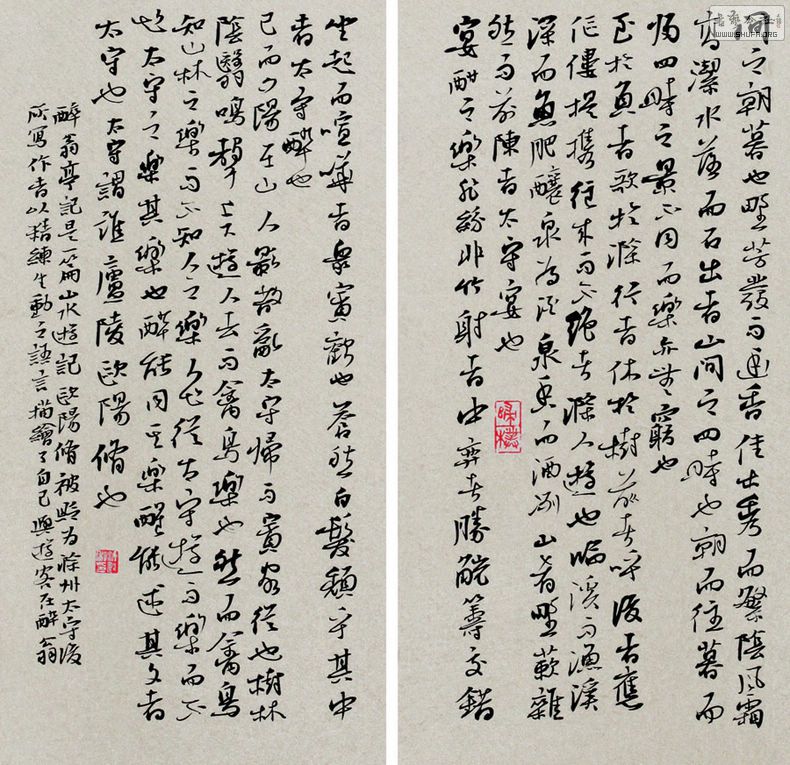 間之朝暮也野芳發而幽香佳木秀而繁陰風霜
高潔水落而石出者山間之四時也朝而往暮而
歸四時之景不同而樂亦無窮也
至於負者歌於滁行者休於樹前者呼後者應
傴僂提攜往來而不絕者滁人遊也臨溪而漁溪
深而魚肥釀泉為酒泉香而酒洌山肴野蔌雜
然而前陳者太守宴也
宴酣之樂非絲非竹射者中弈者勝觥籌交錯
坐起而喧嘩者眾賓歡也蒼然白髮頹乎其中
者太守醉也
已而夕陽在山人影散亂太守歸而賓客從也樹林
陰翳鳴聲上下遊人去而禽鳥樂也然而禽鳥
知山林之樂而不知人之樂人知從太守遊而樂而不
知太守之樂其樂也醉能同其樂醒能述其文者
太守也太守謂誰廬陵歐陽脩也
醉翁亭記是篇山水遊記歐陽脩被貶為滁州太守後
所寫作者以精練生動之語言描繪了自己與遊客在醉翁
WWW.SHUFA.ORG